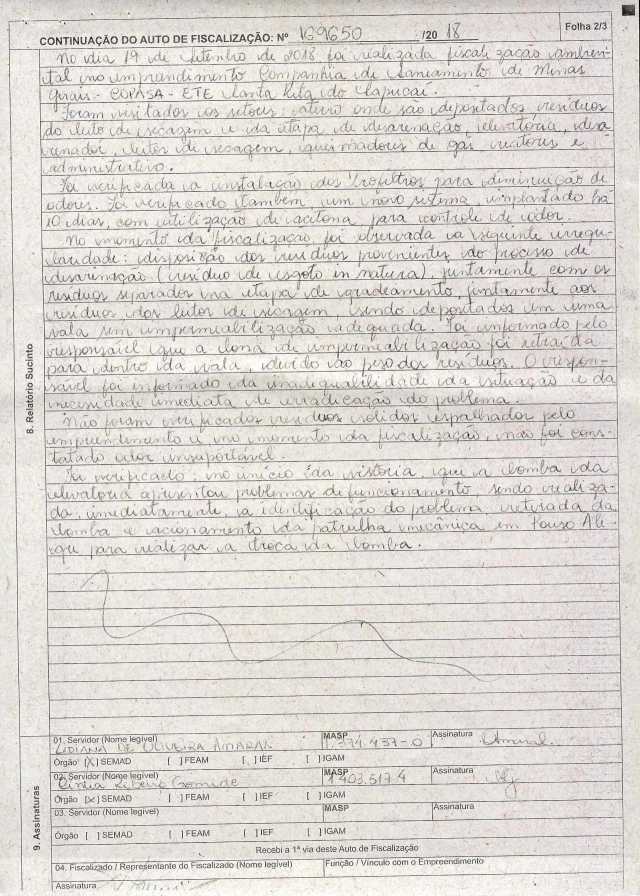 Folha 2/3
CONTINUAÇÃO DO AUTO DE FISCALIZAÇÃO: Nº 169650 /20 18
No dia 19 de Setembro de 2018 foi realizada fiscalização ambien-
tal no empreendimento Companhia de Saneamento de Minas
Gerais - COPASA - ETE Santa Rita do Sapucaí.
Foram visitados os setores: aterro onde são depositados resíduos
do leito de secagem e da etapa de desarenação, elevatória, desa
renador, leitos de secagem, queimadores de gás, reatores e
administrativo.
Foi verificada a instalação dos biofiltros para diminuição de
odores. Foi verificado também, um novo sistema, implantado há
10 dias, com utilização de acitona para controle de odor.
No momento da fiscalização foi observada a seguinte irregu-
laridade: disposição dos resíduos provenientes do processo de
desarenação (resíduo de esgoto in natura), juntamente com os
resíduos separados na etapa de gradeamento, juntamente aos
resíduos dos leitos de secagem, sendo depositados em uma
vala sem impermeabilização adequada. Foi informado pelo
responsável que a lona de impermeabilização foi retraída
para dentro da vala, devido ao peso dos resíduos. O respon-
sável foi informado da inadequalidade da situação e da
necessidade imediata de erradicação do problema.
Não foram verificados resíduos sólidos espalhados pelo
empreendimento e no momento da fiscalização, não foi cons-
tatado odor insuportável.
Foi verificado, no início da vistoria, que a bomba da
elevatória apresentou problemas de funcionamento, sendo realiza-
da, imediatamente, a identificação do problema, retirada da
bomba e acionamento da patrulha mecânica em Pouso Ale-
gre para realizar a troca da bomba.
8. Relatório Sucinto
9. Assinaturas
01. Servidor (Nome legível) MASP Assinatura
LIDIANA DE OLIVEIRA AMARAL 1.374.437-0 Amaral
Órgão [X] SEMAD [ ] FEAM [ ] IEF [ ] IGAM
02. Servidor (Nome legível) MASP Assinatura
Cíntia Ribeiro 1403.517 4
Órgão [X] SEMAD [ ] FEAM [ ] IEF [ ] IGAM
03. Servidor (Nome legível) MASP Assinatura
Órgão [ ] SEMAD [ ] FEAM [ ] IEF [ ] IGAM
Recebi a 1ª via deste Auto de Fiscalização
04. Fiscalizado / Representante do Fiscalizado (Nome legível) Função / Vínculo com o Empreendimento
Assinatura